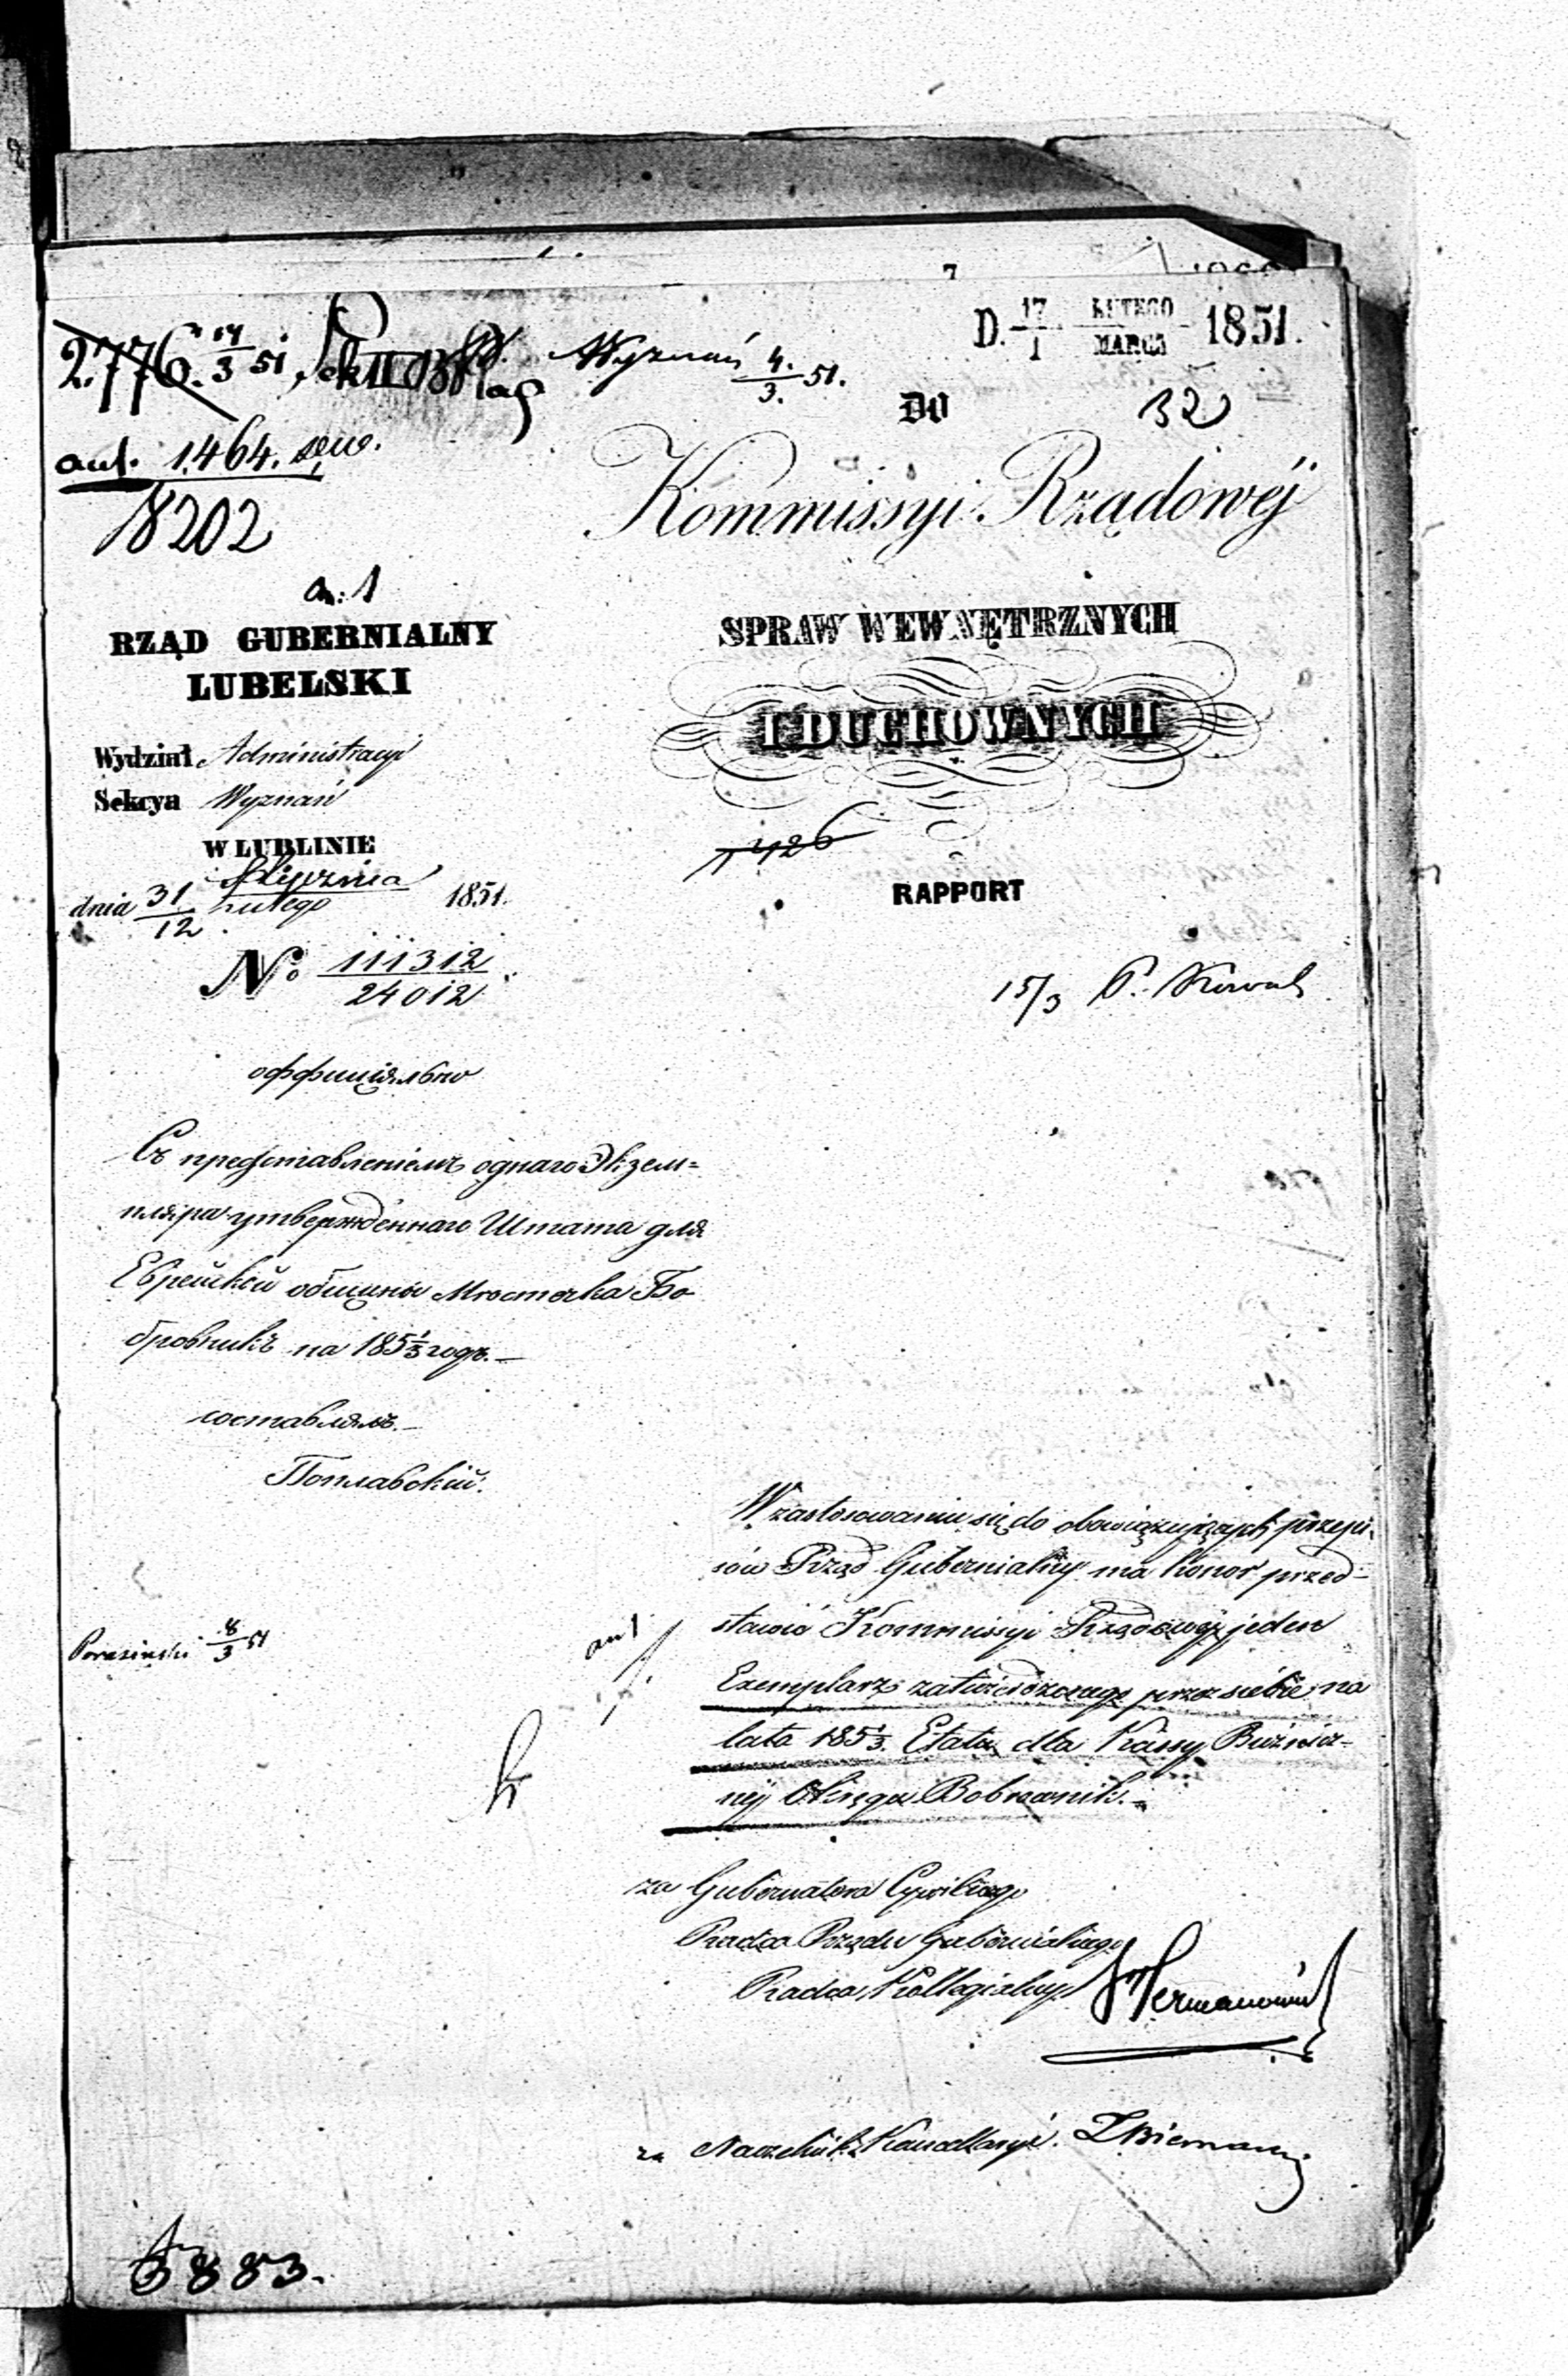 D. 17/1 LUTEGO/MARCA 1851.
2.776. 14/3 51
Wyznań 4./3. 51.
DO
32
ant. 1464.
18202
Kommissyi Rządowéj
a: 1
RZĄD GUBERNIALNY
LUBELSKI
SPRAW WEWNĘTRZNYCH
I DUCHOWNYCH
Wydział Administracyi
Sekcya Wyznań
W LUBLINIE
dnia 31/12 Stycznia/Lutego 1851.
RAPPORT
№ 111312/24012.
15/3
оффиціяльно
Съ представленіемъ одного Экзем=
пляра утвержденнаго Штата для
Еврейской общины Мѣстечка Бо
бровникъ на 185 1/3 годъ.—
составлялъ.—
Поплавскій.
W zastosowaniu się do obowiązujących przepi-
sów Rząd Gubernialny ma honor przed-
stawić Kommissyi Rządowéj jeden
Exemplarz zatwierdzonego przez siebie na
lata 185 1/3. Etatu dla Kassy Bóźnicz-
néj Okręgu Bobrownik.—
8/3 51
za Gubernatora Cywilnego
Radca Rządu Gubernialnego
Radca Kollegialny
za Naczelnika Kancellaryi.
3883.